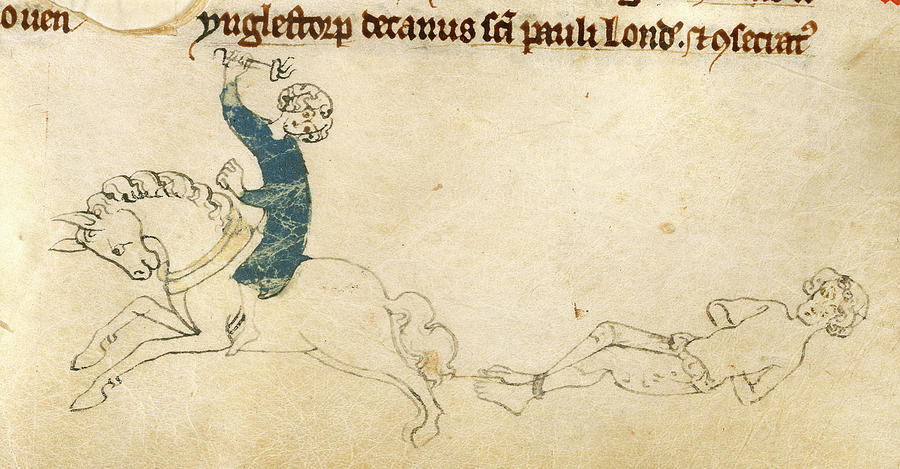 ouen
ynglestorp decanus sci pauli Lond. et 9secratꝰ